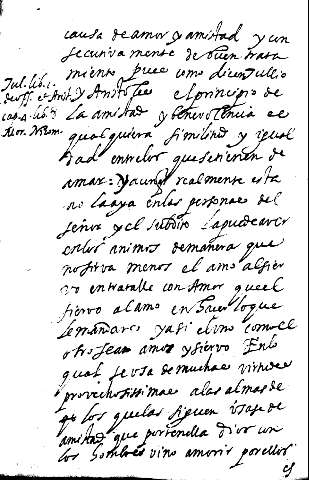 causa de amor y amistad y con
secutivamente de buen trata
miento pues como dicen Tullio
Tul. lib. 1.
de off. et Arist.
cap. 4. lib. 8
y Aristoteles el principio de
la amistad y benevolencia es
qualquiera similitud y igual
dad entre los que se tienen de
amar: y aunq realmente esta
no la aya en las personas del
señor y el subdito la puede aver
en los animos de manera que
no sirva menos el amo al sier
vo en tratalle con Amor que el
siervo al amo en hacer lo que
le mandare y asi el uno como el
otro sean amos y siervo En lo
qual se usa de muchas virtudes
provechosissimas a las almas de
los que las siguen usase de
amistad que por tenella dios con
los hombres vino a morir por ellos